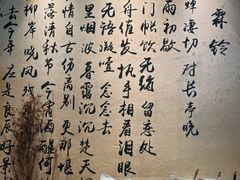 霖铃
蝉凄切 对长亭晚
雨初歇
门帐饮无绪 留恋处
舟催发 执手相看泪眼
无语凝噎 念去去
里烟波 暮霭沉沉楚天
情自古伤离别 更那堪
落清秋节 今宵酒醒何
柳岸 晓风残
去年 应是良辰好景